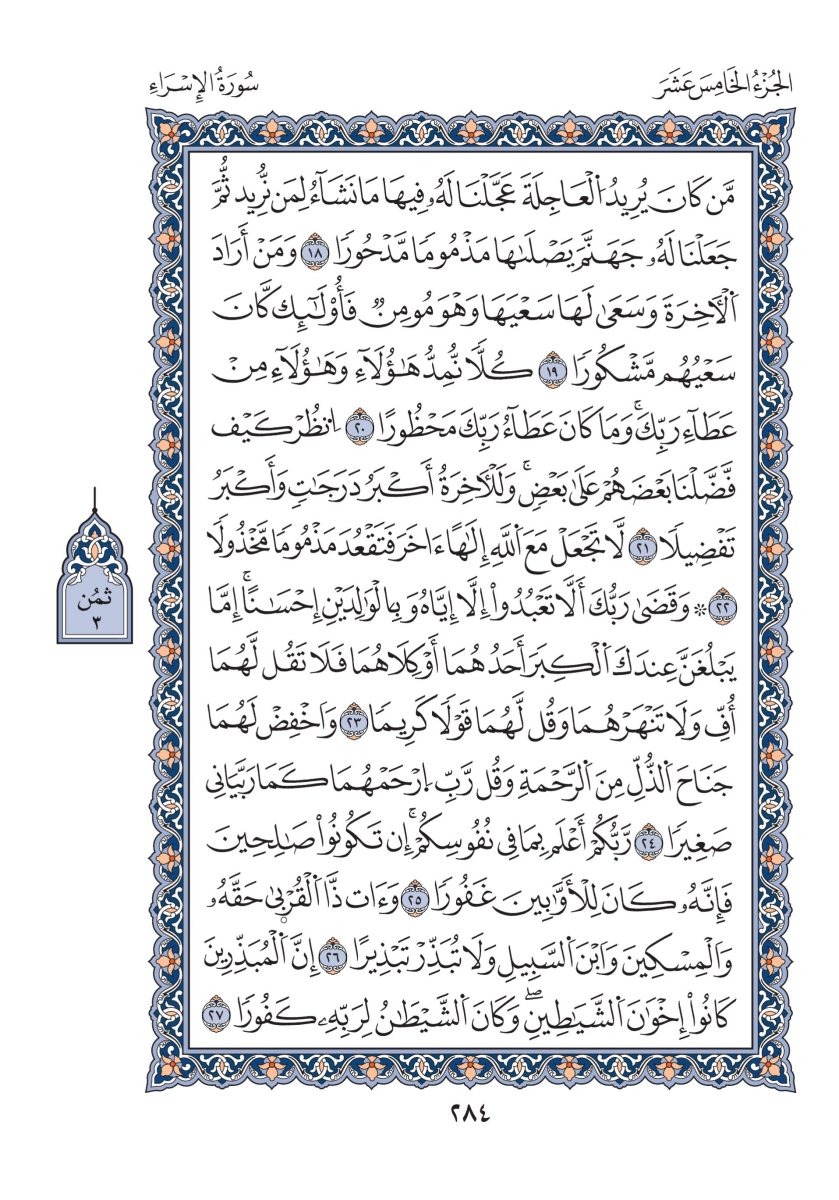 الجُزْءُ الخَامِسَ عَشَرَ
سُورَةُ الإِسْرَاءِ
مَّن كَانَ يُرِيدُ ٱلْعَاجِلَةَ عَجَّلْنَا لَهُۥ فِيهَا مَا نَشَآءُ لِمَن نُّرِيد ثُّمَّ
جَعَلْنَا لَهُۥ جَهَنَّمَ يَصْلَىٰهَا مَذْمُومًا مَّدْحُورًا ١٨ وَمَنْ أَرَادَ
ٱلْأٓخِرَةَ وَسَعَىٰ لَهَا سَعْيَهَا وَهْوَ مُومِنٌ فَأُوْلَٰٓئِك كَّانَ
سَعْيُهُم مَّشْكُورًا ١٩ كُلًّا نُّمِدُّ هَٰٓؤُلَآءِ وَهَٰٓؤُلَآءِ مِنْ
عَطَآءِ رَبِّكَۚ وَمَا كَانَ عَطَآءُ رَبِّكَ مَحْظُورًا ٢٠ ٱنظُرْ كَيْف
فَّضَّلْنَا بَعْضَهُمْ عَلَىٰ بَعْضٍۚ وَلَلْأٓخِرَةُ أَكْبَرُ دَرَجَٰتٍ وَأَكْبَرُ
تَفْضِيلًا ٢١ لَّا تَجْعَلْ مَعَ ٱللَّهِ إِلَٰهًا ءَاخَرَ فَتَقْعُدَ مَذْمُومًا مَّخْذُولًا
٢٢ ۞ وَقَضَىٰ رَبُّكَ أَلَّا تَعْبُدُوٓاْ إِلَّآ إِيَّاهُ وَبِالْوَٰلِدَيْنِ إِحْسَٰنًاۚ إِمَّا
يَبْلُغَنَّ عِندَكَ ٱلْكِبَرَ أَحَدُهُمَآ أَوْ كِلَاهُمَا فَلَا تَقُل لَّهُمَآ
أُفِّ وَلَا تَنْهَرْهُمَا وَقُل لَّهُمَا قَوْلًا كَرِيمًا ٢٣ وَٱخْفِضْ لَهُمَا
جَنَاحَ ٱلذُّلِّ مِنَ ٱلرَّحْمَةِ وَقُل رَّبِّ ٱرْحَمْهُمَا كَمَا رَبَّيَانِي
صَغِيرًا ٢٤ رَّبُّكُمْ أَعْلَم بِمَا فِي نُفُوسِكُمْۚ إِن تَكُونُواْ صَٰلِحِينَ
فَإِنَّهُۥ كَانَ لِلْأَوَّٰبِينَ غَفُورًا ٢٥ وَءَات ذَّا ٱلْقُرْبَىٰ حَقَّهُۥ
وَٱلْمِسْكِينَ وَٱبْنَ ٱلسَّبِيلِ وَلَا تُبَذِّرْ تَبْذِيرًا ٢٦ إِنَّ ٱلْمُبَذِّرِينَ
كَانُوٓاْ إِخْوَٰنَ ٱلشَّيَٰطِينِۖ وَكَانَ ٱلشَّيْطَٰنُ لِرَبِّهِۦ كَفُورًا ٢٧
ثمُن
٣
٢٨٤